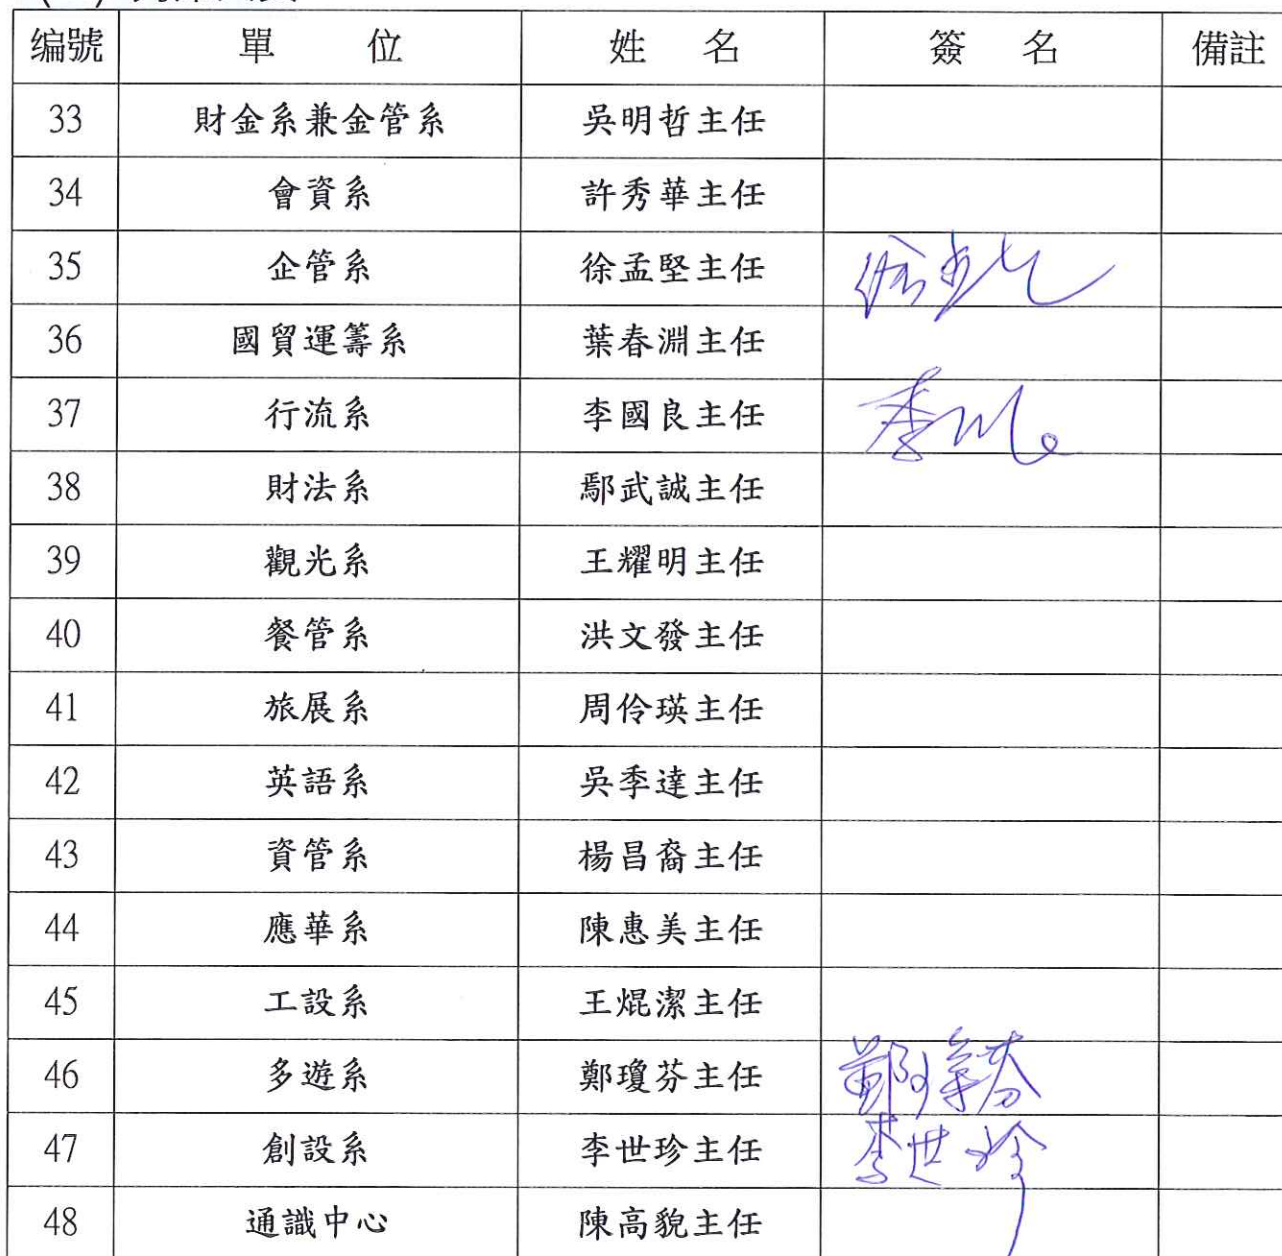 编號 單 位 姓 名 簽 名 備註
33 財金系兼金管系 吳明哲主任
34 會資系 許秀華主任
35 企管系 徐孟堅主任
36 國貿運籌系 葉春淵主任
37 行流系 李國良主任 李
38 財法系 鄢武誠主任
39 觀光系 王耀明主任
40 餐管系 洪文發主任
41 旅展系 周伶瑛主任
42 英語系 吳季達主任
43 資管系 楊昌裔主任
44 應華系 陳惠美主任
45 工設系 王焜潔主任
46 多遊系 鄭瓊芬主任 鄭瓊芬
47 創設系 李世珍主任 李世珍
48 通識中心 陳高貌主任